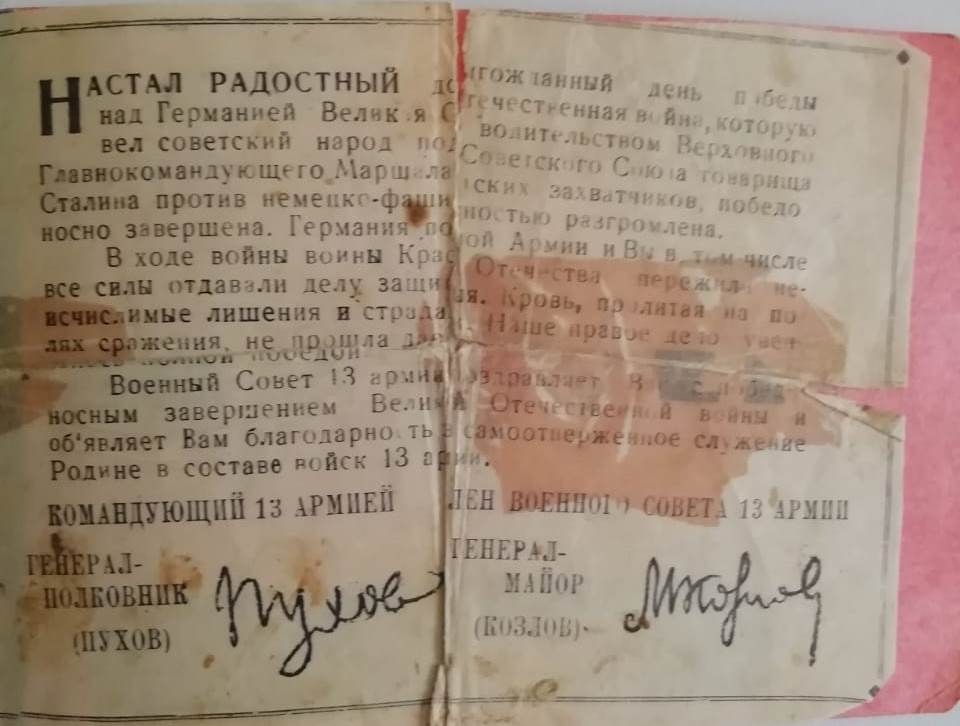 НАСТАЛ РАДОСТНЫЙ долгожданный день победы
над Германией Великая Отечественная война, которую
вел советский народ под водительством Верховного
Главнокомандующего Маршала Советского Союза товарища
Сталина против немецко-фашистских захватчиков, победо
носно завершена. Германия полностью разгромлена.
В ходе войны воины Красной Армии и Вы в том числе
все силы отдавали делу защиты Отечества пережили не-
исчислимые лишения и страдания. Кровь, пролитая на по
лях сражения, не прошла даром. Наше правое дело увен
полной победой
Военный Совет 13 армии поздравляет Вас с победо
носным завершением Великой Отечественной войны и
об'являет Вам благодарность за самоотверженное служение
Родине в составе войск 13 армии.
КОМАНДУЮЩИЙ 13 АРМИЕЙ ЧЛЕН ВОЕННОГО СОВЕТА 13 АРМИИ
ГЕНЕРАЛ- ГЕНЕРАЛ-
ПОЛКОВНИК Пухов МАЙОР МКозлов
(ПУХОВ) (КОЗЛОВ)